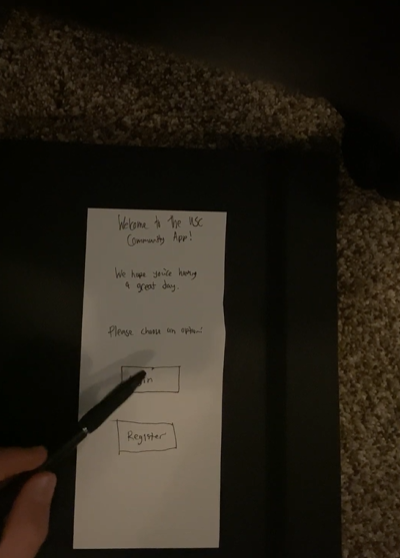 Welcome to the USC
Community App!
We hope you're having
a great day.
Please choose an option:
Register